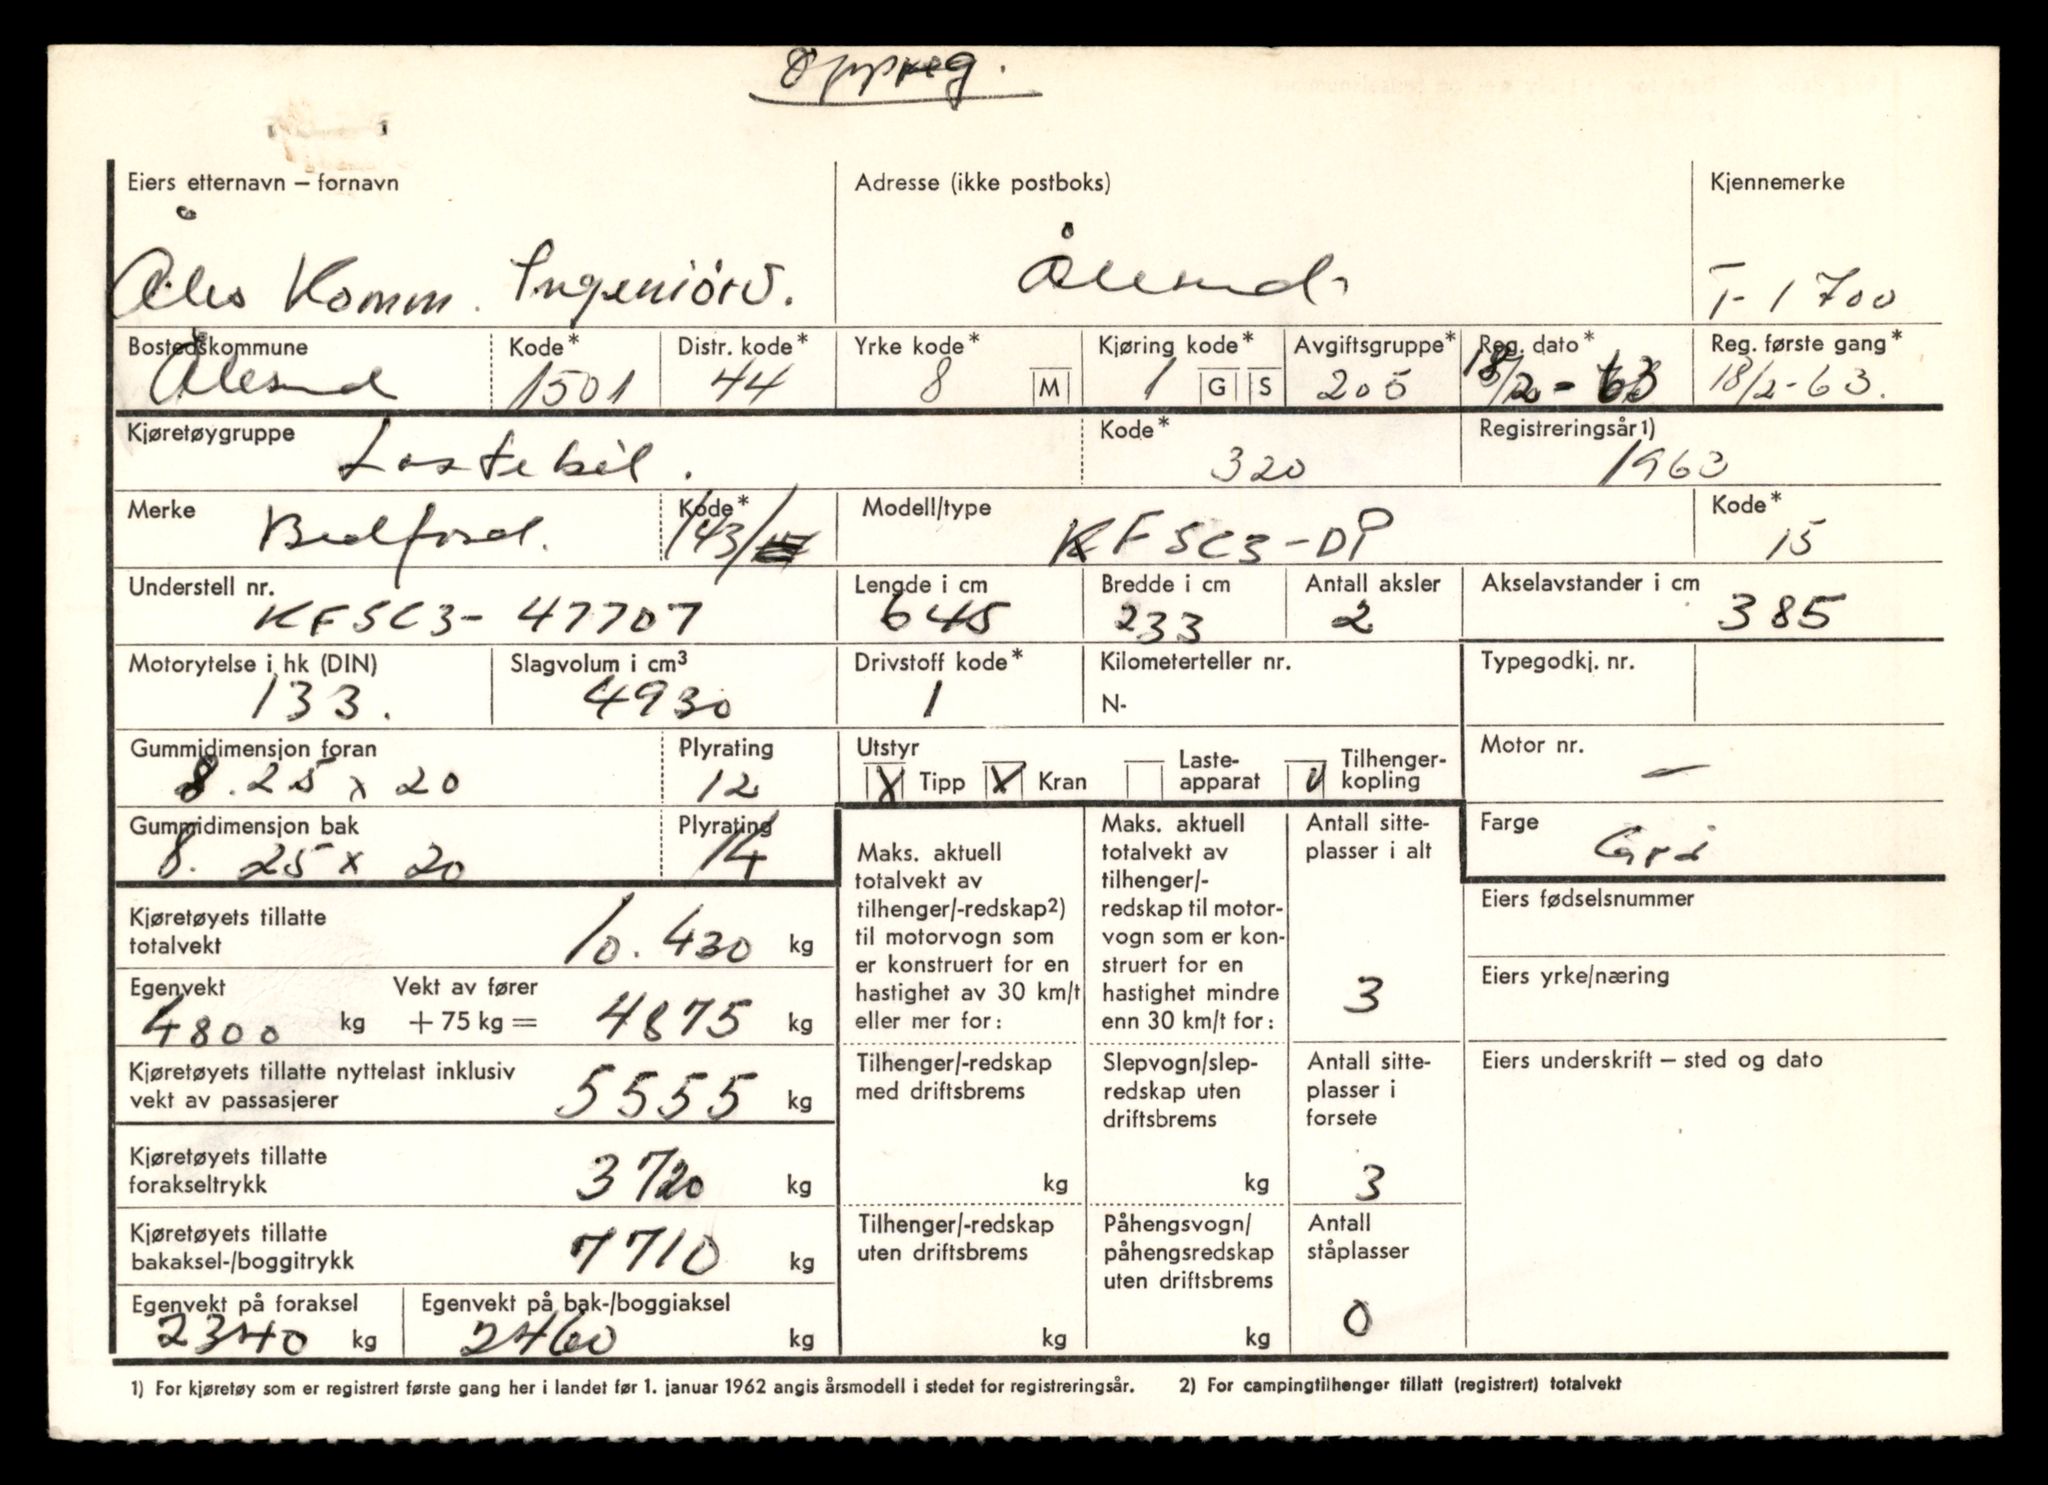 Oppreg.
Eiers etternavn – fornavn Adresse (ikke postboks) Kjennemerke
Åles Komm. Ingeniörv. Ålesund T-1700
Bostedskommune Kode* Distr. kode* Yrke kode* Kjøring kode* Avgiftsgruppe* Reg. dato* Reg. første gang*
Ålesund 1501 44 8 M 1 G S 205 18/2-63 18/2-63.
Kjøretøygruppe Kode* Registreringsår1)
Lastebil. 320 1963
Merke Kode* Modell/type Kode*
Bedford. 143/ KFSC3-DP 15
Understell nr. Lengde i cm Bredde i cm Antall aksler Akselavstander i cm
KFSC3- 47707 645 233 2 385
Motorytelse i hk (DIN) Slagvolum i cm3 Drivstoff kode* Kilometerteller nr. Typegodkj. nr.
133. 4930 1 N-
Gummidimensjon foran Plyrating Utstyr Motor nr.
8.25 x 20 12 X Tipp X Kran Laste-apparat V Tilhenger-kopling —
Gummidimensjon bak Plyrating
8. 25 x 20 14
Farge
Grå
Maks. aktuell
totalvekt av
tilhenger/-redskap2)
til motorvogn som
er konstruert for en
hastighet av 30 km/t
eller mer for:
Maks. aktuell
totalvekt av
tilhenger/-
redskap til motor-
vogn som er kon-
struert for en
hastighet mindre
enn 30 km/t for:
Antall sitte-
plasser i alt
3
Eiers fødselsnummer
Eiers yrke/næring
Kjøretøyets tillatte
totalvekt 10.430 kg
Egenvekt Vekt av fører
4800 kg + 75 kg = 4875 kg
Kjøretøyets tillatte nyttelast inklusiv
vekt av passasjerer 5555 kg
Kjøretøyets tillatte
forakseltrykk 3720 kg
Kjøretøyets tillatte
bakaksel-/boggitrykk 7710 kg
Egenvekt på foraksel Egenvekt på bak-/boggiaksel
2340 kg 2460 kg
Tilhenger/-redskap
med driftsbrems
kg
Slepvogn/slep-
redskap uten
driftsbrems
kg
Antall sitte-
plasser i
forsete
3
Eiers underskrift – sted og dato
Tilhenger/-redskap
uten driftsbrems
kg
Påhengsvogn/
påhengsredskap
uten driftsbrems
kg
Antall
ståplasser
0
1) For kjøretøy som er registrert første gang her i landet før 1. januar 1962 angis årsmodell i stedet for registreringsår. 2) For campingtilhenger tillatt (registrert) totalvekt